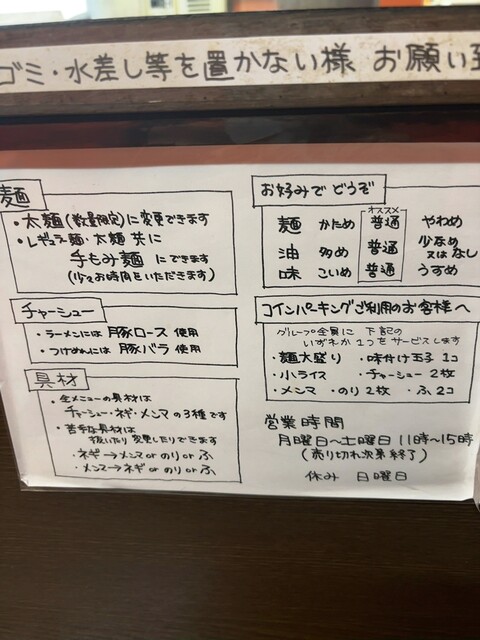 ゴミ・水差し等を置かない様 お願い
麺
・太麺(数量限定)に変更できます
・レギュラー麺・太麺 共に
手もみ麺 にできます
(少々お時間をいただきます)
チャーシュー
・ラーメンには 豚ロース 使用
・つけめんには 豚バラ 使用
具材
・全メニューの具材は
チャーシュー・ネギ・メンマ の3種です
・苦手な具材は
抜いたり 変更したりできます
・ネギ→メンマ or のり or ふ
・メンマ→ネギ or のり or ふ
お好みで どうぞ
オススメ
麺 かため 普通 やわめ
油 多め 普通 少なめ又はなし
味 こいめ 普通 うすめ
コインパーキングご利用のお客様へ
グループ全員に 下記の
いずれか1つをサービスします
・麺大盛り ・味付け玉子 1コ
・小ライス ・チャーシュー 2枚
・メンマ ・のり 2枚 ・ふ 2コ
営業時間
月曜日〜土曜日 11時〜15時
(売り切れ次第終了)
休み 日曜日